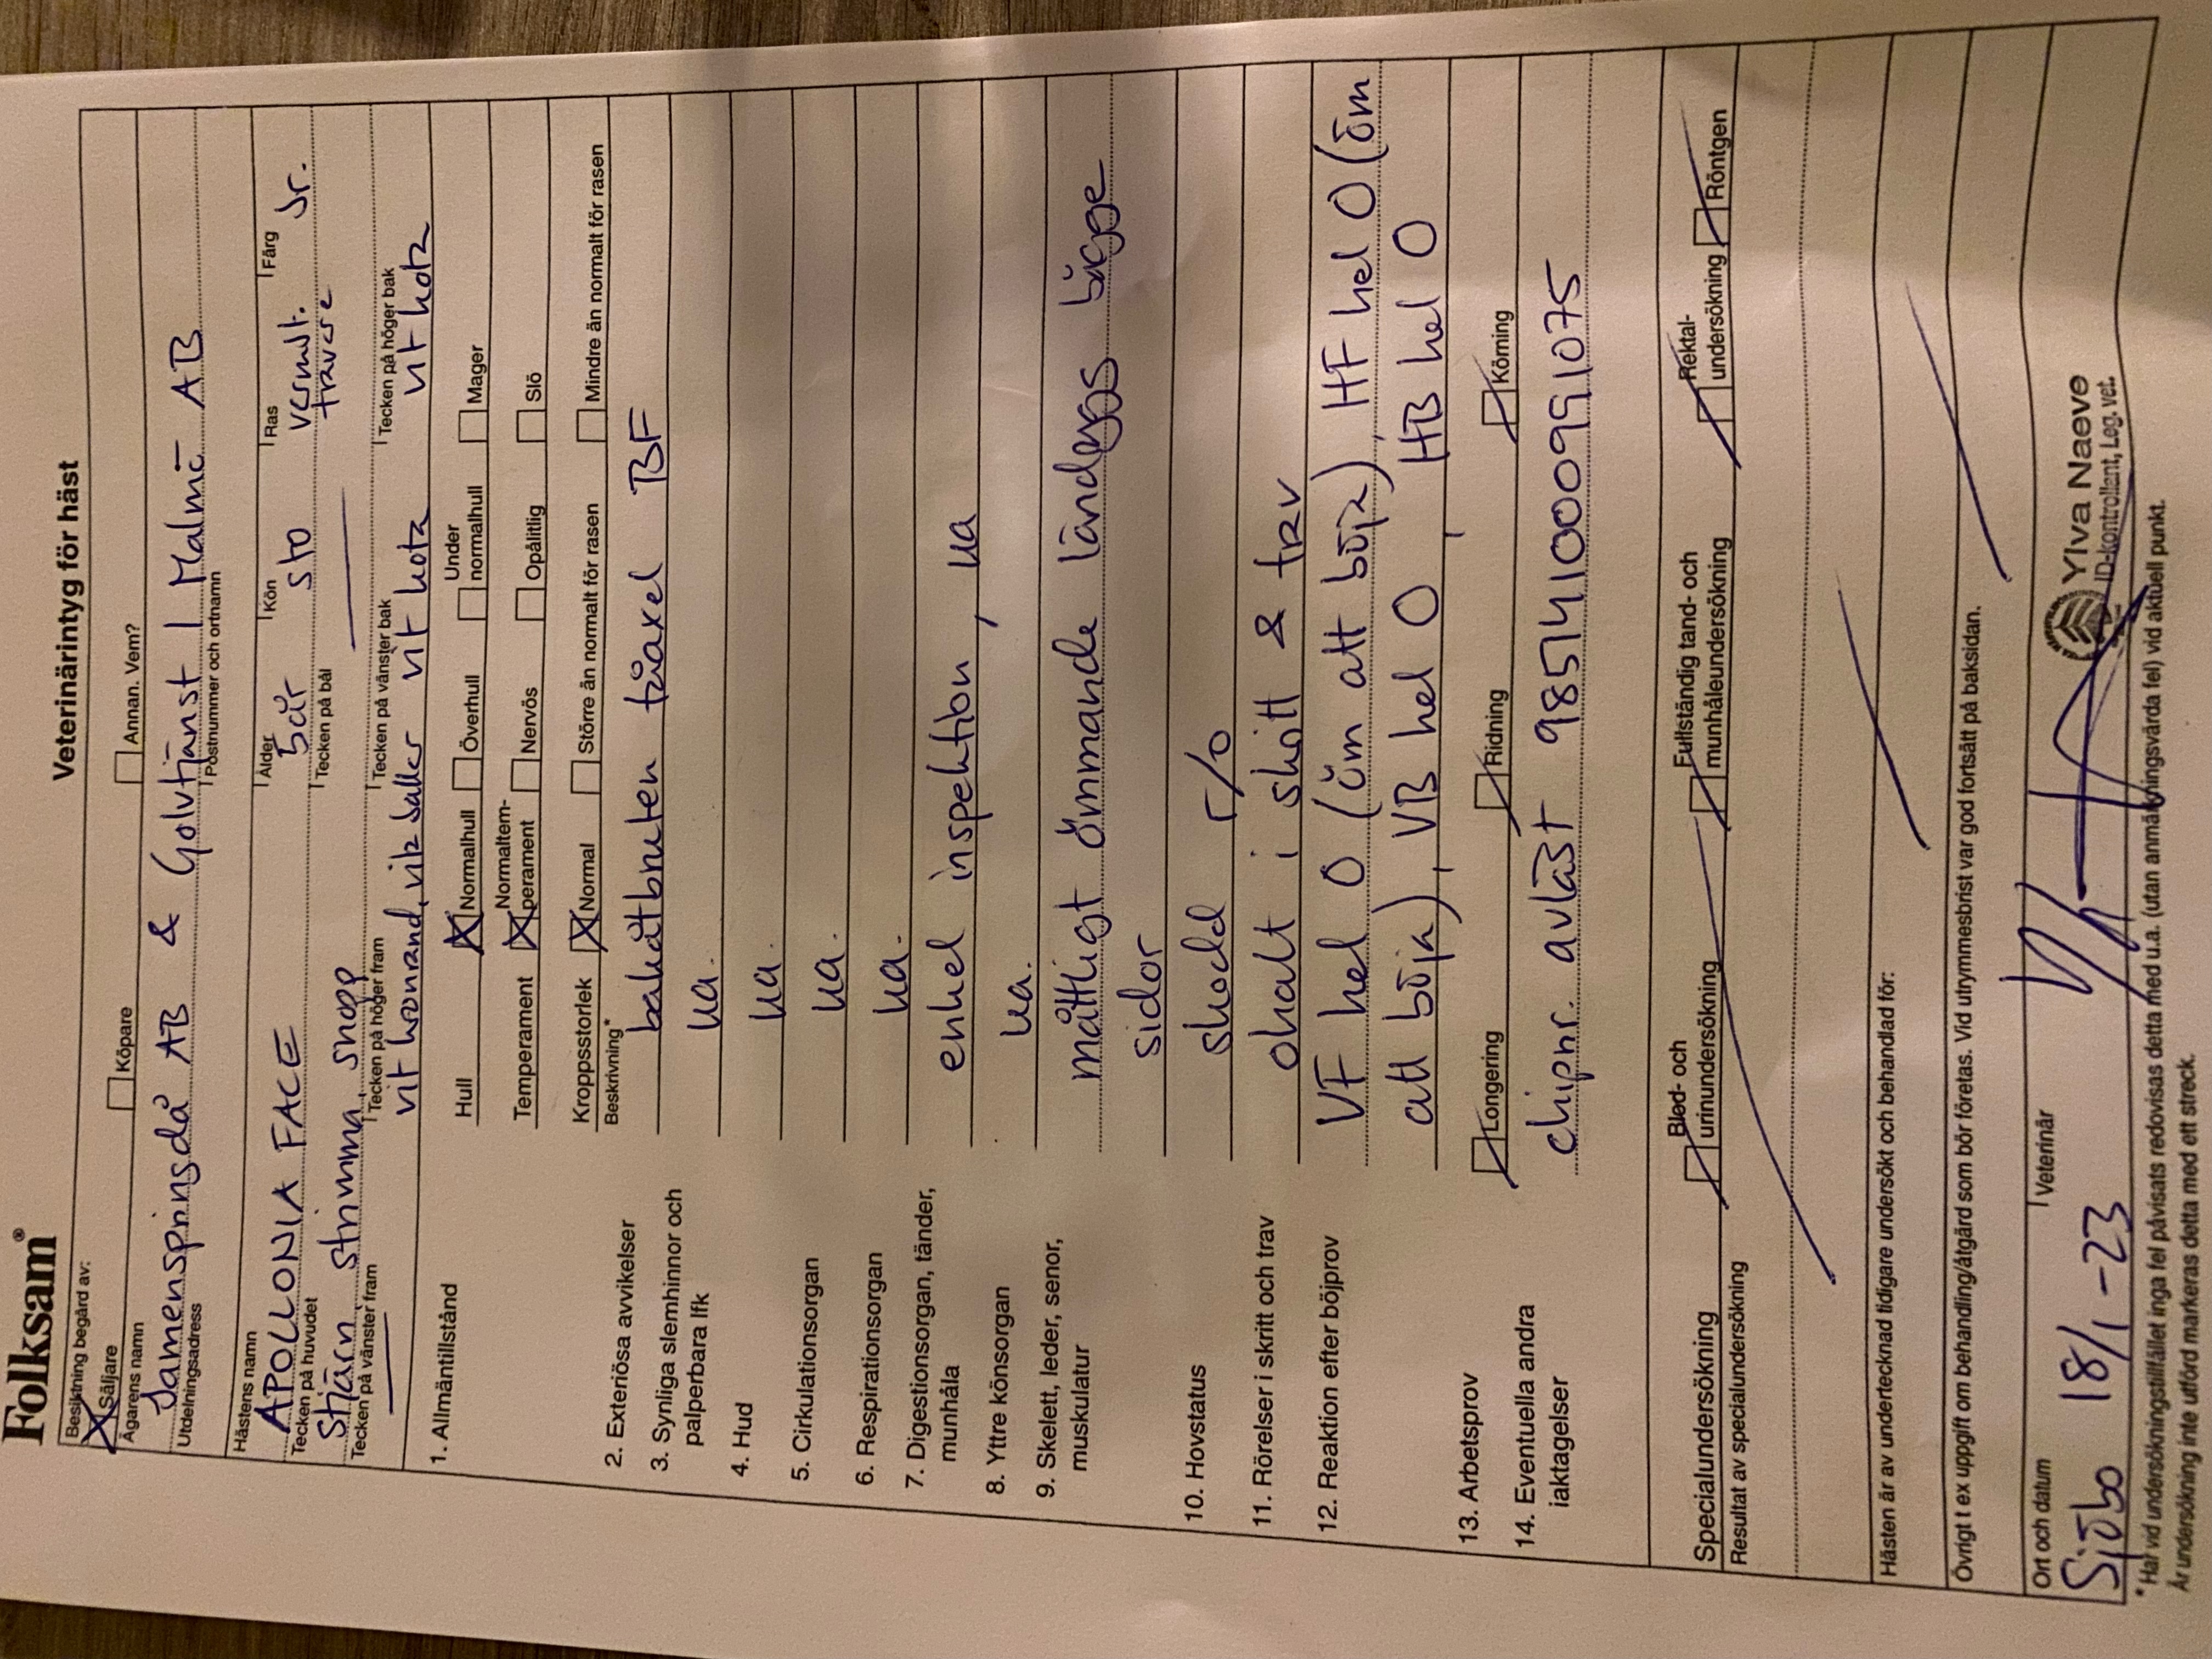 Folksam®
Veterinärintyg för häst
Besiktning begärd av:
Säljare Köpare Annan. Vem?
Ägarens namn
Jamensprinsdå AB & Golvtjänst I Malmö AB
Utdelningsadress Postnummer och ortnamn
Hästens namn Ålder Kön Ras Färg
APOLLONIA FACE 5år sto varmbl. travare br.
Tecken på huvudet Tecken på bål
stjärn strimma snopp
Tecken på vänster fram Tecken på höger fram Tecken på vänster bak Tecken på höger bak
vit kronrand, vit ballar vit kota vit kota
1. Allmäntillstånd Hull Normalhull Överhull Under normalhull Mager
Temperament Normaltemperament Nervös Opålitlig Slö
Kroppsstorlek Normal Större än normalt för rasen Mindre än normalt för rasen
Beskrivning*
2. Exteriösa avvikelser bakåtbruten tåaxel BF
3. Synliga slemhinnor och palperbara lfk ua.
4. Hud ua.
5. Cirkulationsorgan ua.
6. Respirationsorgan ua.
7. Digestionsorgan, tänder, munhåla enkel inspektion, ua
8. Yttre könsorgan ua.
9. Skelett, leder, senor, muskulatur måttligt ömmande ländrygg bägge
sidor
10. Hovstatus skodd r/o
11. Rörelser i skritt och trav ohalt i skritt & trav
12. Reaktion efter böjprov VF hel 0 (öm att böja), HF hel 0 (öm
att böja), VB hel 0, HB hel 0
13. Arbetsprov Longering Ridning Körning
14. Eventuella andra iaktagelser chipnr. avläst 985141000991075
Specialundersökning Blod- och urinundersökning Fullständig tand- och munhåleundersökning Rektal-undersökning Röntgen
Resultat av specialundersökning
Hästen är av undertecknad tidigare undersökt och behandlad för:
Övrigt t ex uppgift om behandling/åtgärd som bör företas. Vid utrymmesbrist var god fortsätt på baksidan.
Ort och datum Veterinär
Sjöbo 18/1-23
Ylva Naeve
ID-kontrollant, Leg. vet.
*Har vid undersökningstillfället inga fel påvisats redovisas detta med u.a. (utan anmärkningsvärda fel) vid aktuell punkt.
Är undersökning inte utförd markeras detta med ett streck.